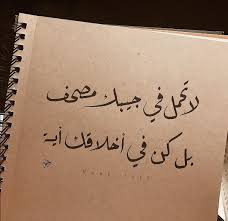 لا تحمل في جيبك مصحف
بل كن في أخلاقك آية